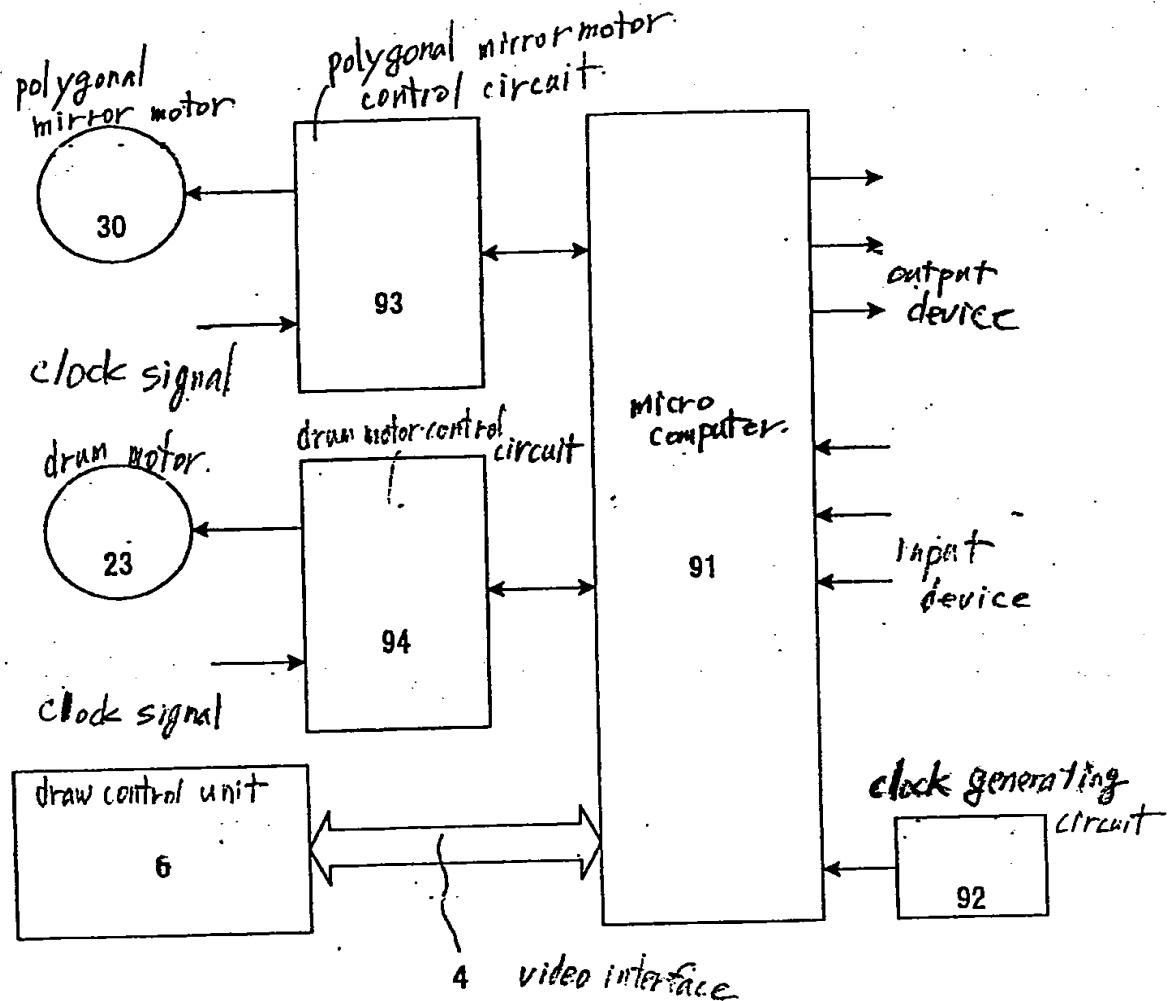 polygonal
mirror motor
polygonal mirror motor
control circuit.
30
93
clock signal
output
device
micro
computer.
drum motor control
circuit
drum motor.
23
94
91
input
device
clock signal
draw control unit
6
clock generating
circuit
92
4 video interface